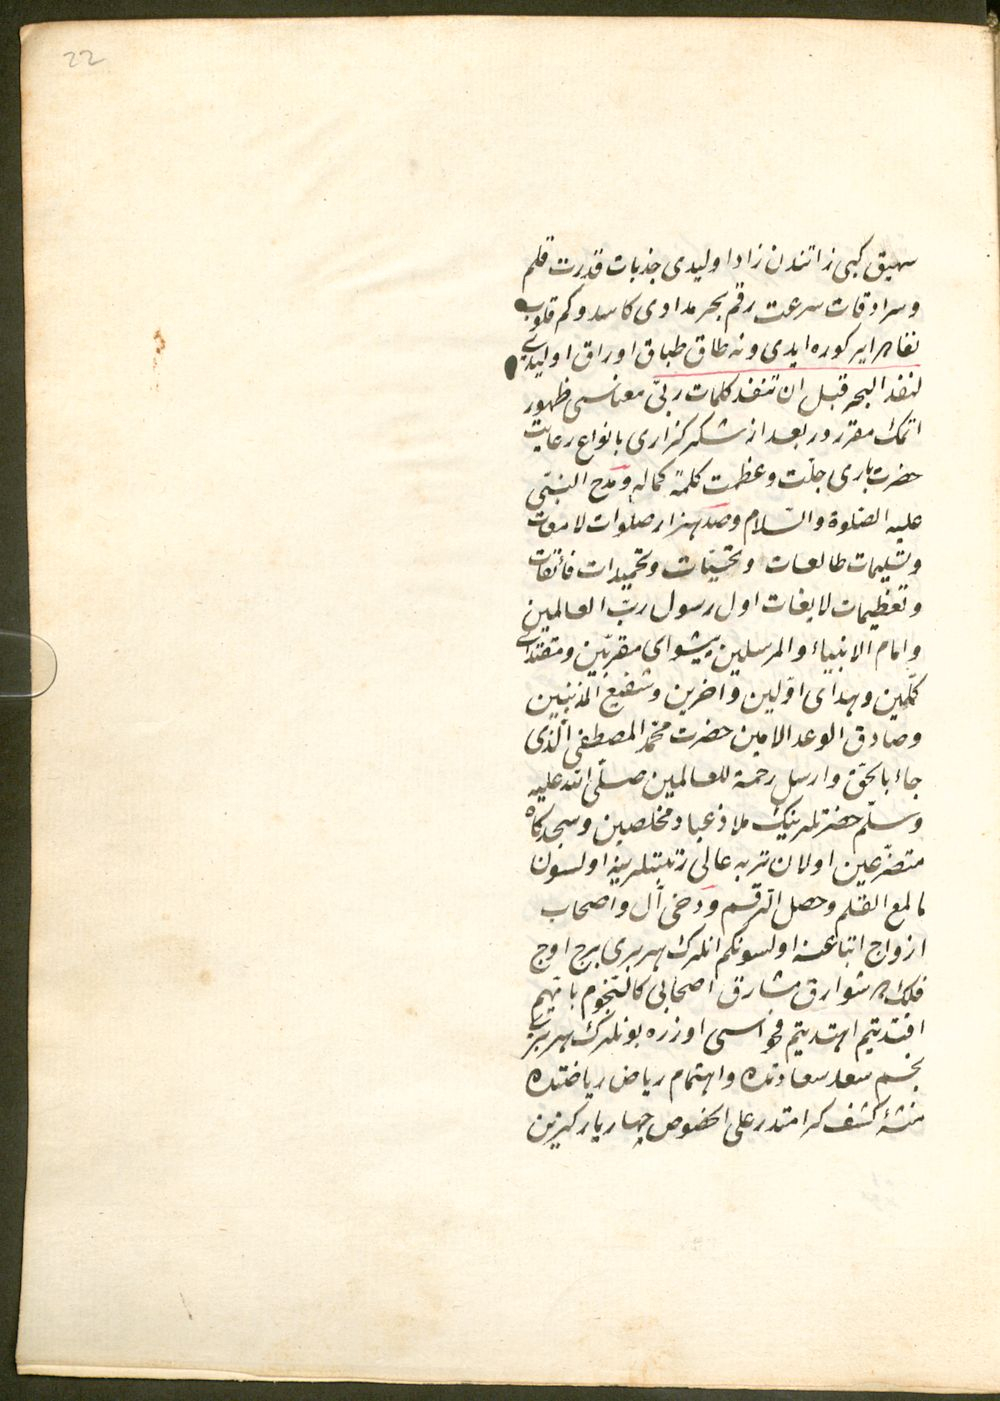 22
سهيق كبى زاتندن زاد اوليدى جذبات قدرت قلم
وسرادقات سرعت رقم بحر مدادى كاسد وكم قلوب
ايركوره ايدى ونه طاق طباق اوراق اوليدى
لنفد البحر قبل ان تنفد كلمات ربّى معناسى ظهور
اتمك مقرردر بعد از شكر كزارى بانواع رعايت
حضرت بارى جلّت وعظمت كلمة كماله ومدح النبىّ
عليه الصّلوة والسّلام وصد هزار صلوات لامعات
وتسليمات طالعات وتحيّات وتحميدات فائقات
وتعظيمات لايغات اول رسول ربّ العالمين
وامام الانبياء والمرسلين پيشواى مقرّبين ومقتداى
كمّلين وهداى اوّلين واخرين وشفيع المذنبين
وصادق الوعد الامين حضرت محمّد المصطفى الّذى
جاء بالحقّ وارسل رحمة للعالمين صلّى الله عليه
وسلّم حضرتلرينك ملاذ عباد مخلصين وسجدكاه
متضرّعين اولان تربه عالى رتبتلرينه اولسون
مالمع القلم وحصل الرّقم ودخى آل واصحاب
ازواج اتباعنه اولسونكم انلرك هر برى برج اوج
فلك شوارق مشارق اصحابى كالنّجوم بايّهم
اقتديتم اهتديتم فحواسى اوزره بونلرك هر برى
نجم سعد سعادتده واهتمام رياض رياضتده
منشۀ كشف كرامتدر على الخصوص چهار يار كزين